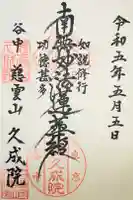 令和五年五月五日
如説修行
南無妙法蓮華経
功徳甚多
谷中 慈雲山 久成院
久成院